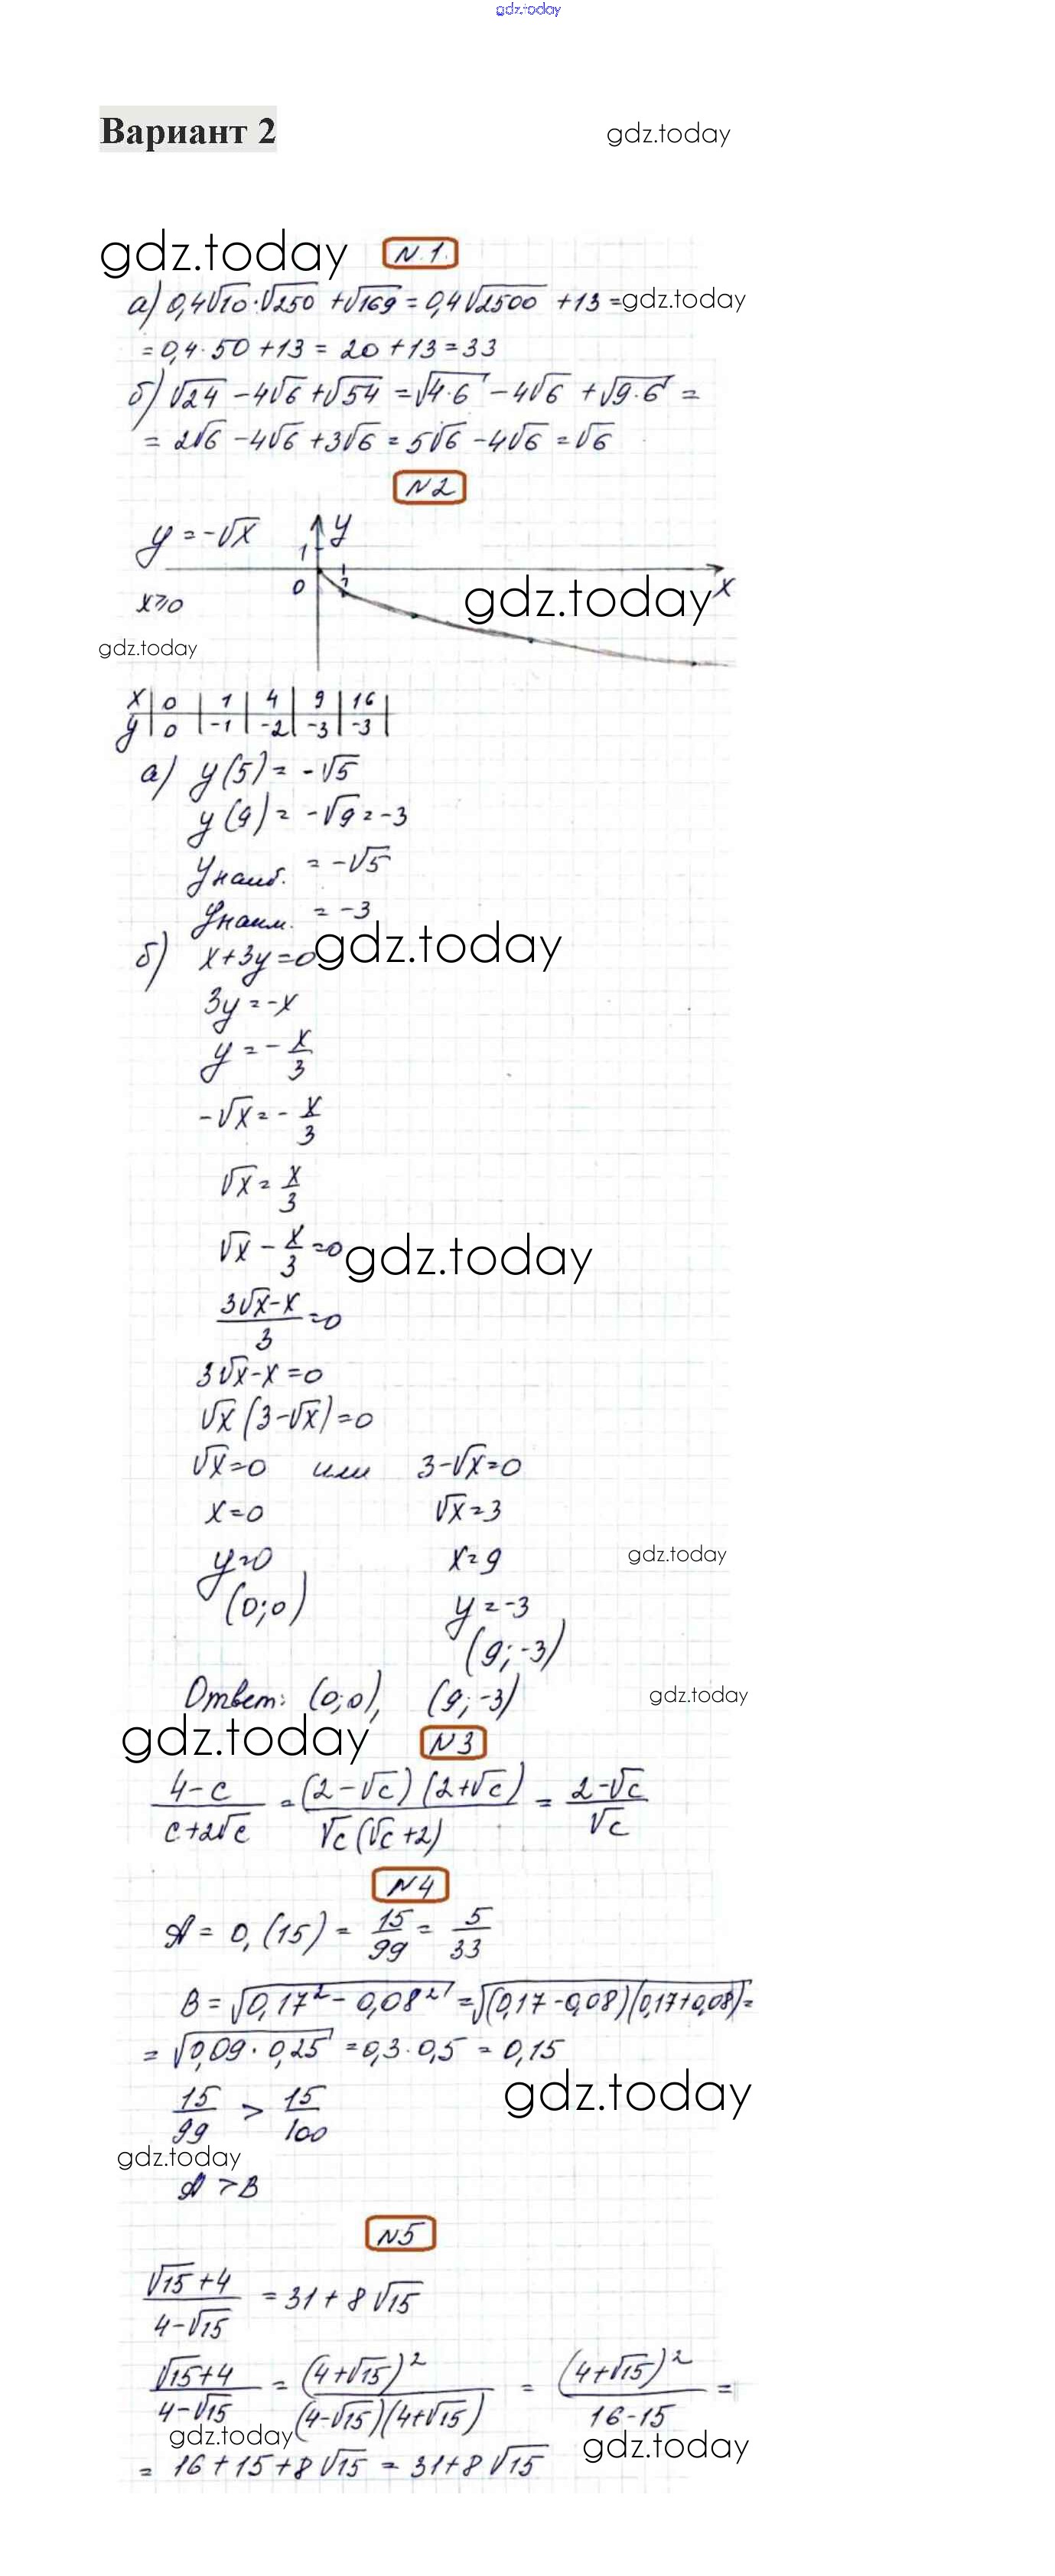 gdz.today
Вариант 2
gdz.today
gdz.today
N 1.
а) 0,4√10·√250 + √169 = 0,4√2500 + 13 =
gdz.today
= 0,4·50 + 13 = 20 + 13 = 33
б) √24 - 4√6 + √54 = √4·6 - 4√6 + √9·6 =
= 2√6 - 4√6 + 3√6 = 5√6 - 4√6 = √6
N2
y = -√x
y
1
0
1
x
x≥0
gdz.today
gdz.today
x | 0 | 1 | 4 | 9 | 16 |
y | 0 | -1 | -2 | -3 | -3 |
а) y(5) = -√5
y(9) = -√9 = -3
yнаиб. = -√5
yнаим. = -3
б) x+3y=0
gdz.today
3y = -x
y = -x/3
-√x = -x/3
√x = x/3
√x - x/3 = 0
gdz.today
(3√x-x)/3 = 0
3√x-x=0
√x(3-√x)=0
√x=0 или 3-√x=0
x=0 √x=3
y=0 x=9
gdz.today
(0;0) y=-3
(9;-3)
Ответ: (0;0), (9;-3)
gdz.today
gdz.today
N3
(4-c)/(c+2√c) = (2-√c)(2+√c)/(√c(√c+2)) = (2-√c)/√c
N4
A = 0,(15) = 15/99 = 5/33
B = √(0,17² - 0,08²) = √((0,17-0,08)(0,17+0,08)) =
= √(0,09·0,25) = 0,3·0,5 = 0,15
gdz.today
15/99 > 15/100
gdz.today
A > B
N5
(√15+4)/(4-√15) = 31+8√15
(√15+4)/(4-√15) = (4+√15)²/((4-√15)(4+√15)) = (4+√15)²/(16-15) =
gdz.today
gdz.today
= 16+15+8√15 = 31+8√15